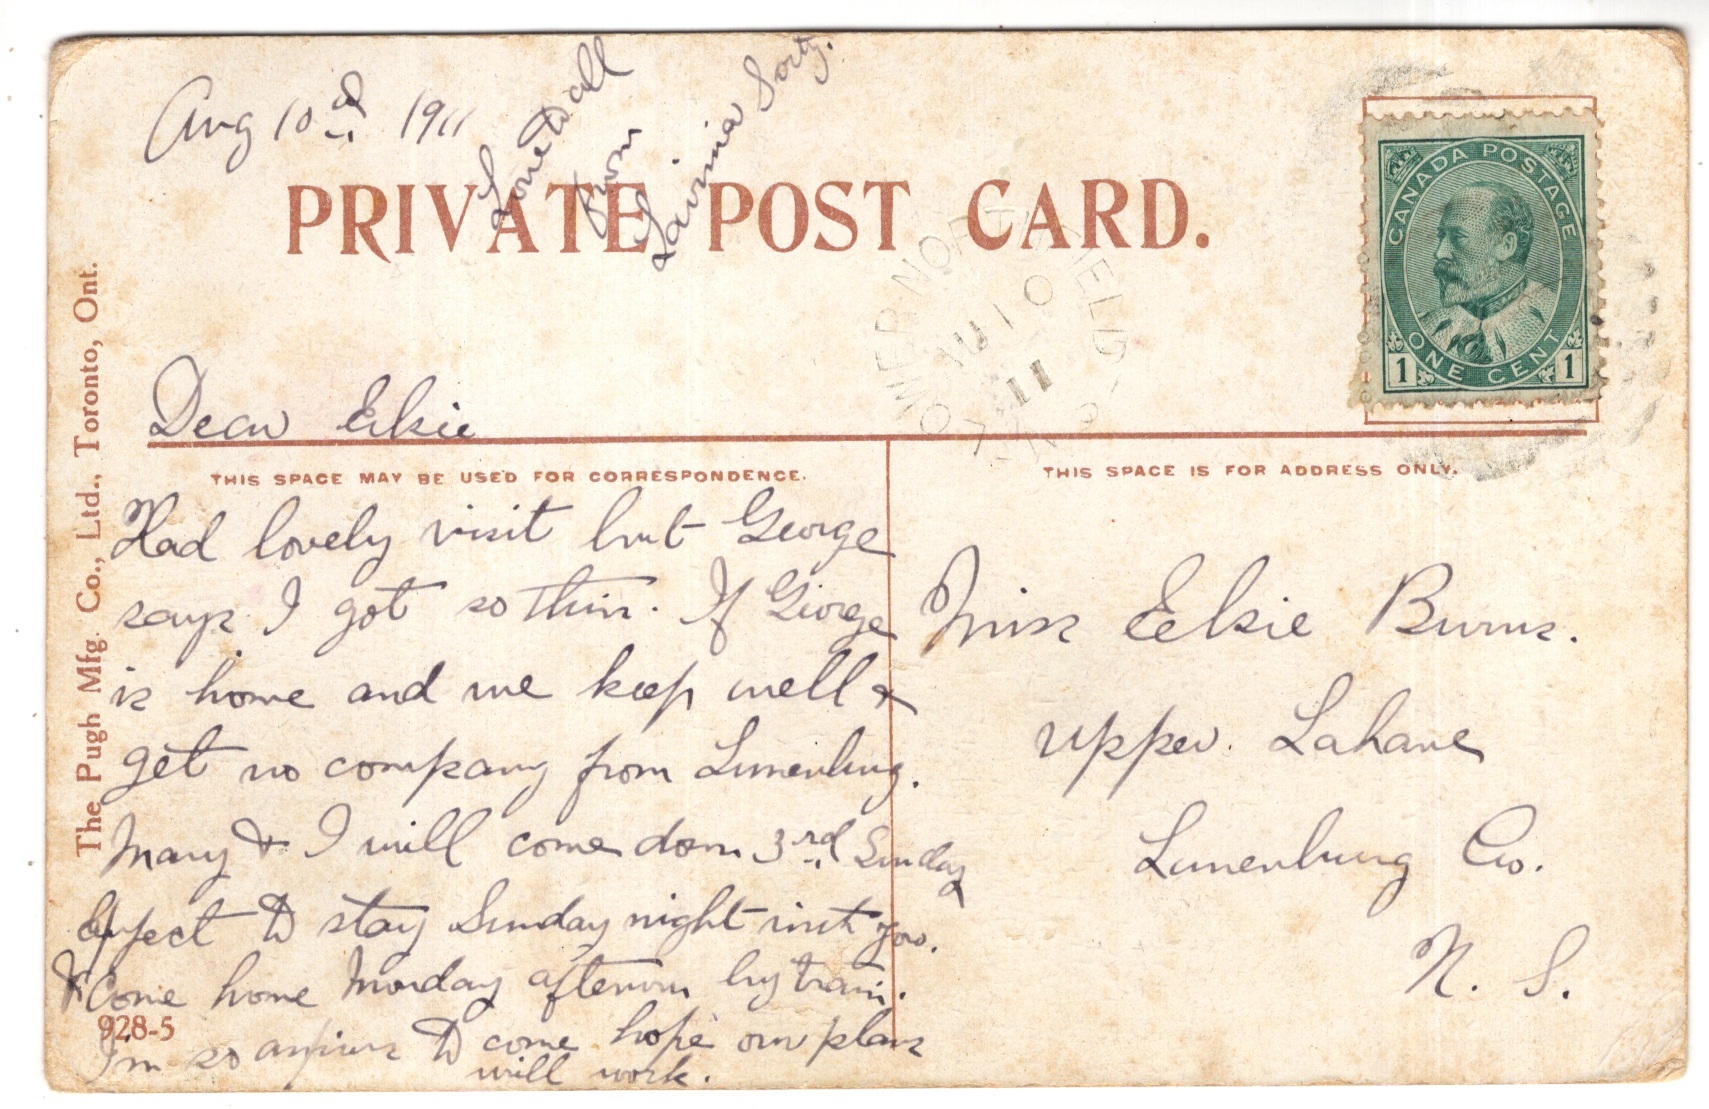 Aug 10th 1911
Love to all
from
Lavinia
PRIVATE POST CARD.
CANADA POSTAGE
ONE CENT
1 1
LOWER NORTHFIELD
AU 10
11
N.S.
The Pugh Mfg. Co., Ltd., Toronto, Ont.
Dear Elsie
THIS SPACE MAY BE USED FOR CORRESPONDENCE.
THIS SPACE IS FOR ADDRESS ONLY.
Had lovely visit but George
says I got so thin. If George
is home and we keep well &
get no company from Lunenburg.
Mary & I will come down 3rd Sunday
Expect to stay Sunday night with you.
& Come home Monday afternoon by train.
I'm so anxious to come hope our plans
will work.
928-5
Miss Elsie Burns.
Upper Lahave
Lunenburg Co.
N. S.